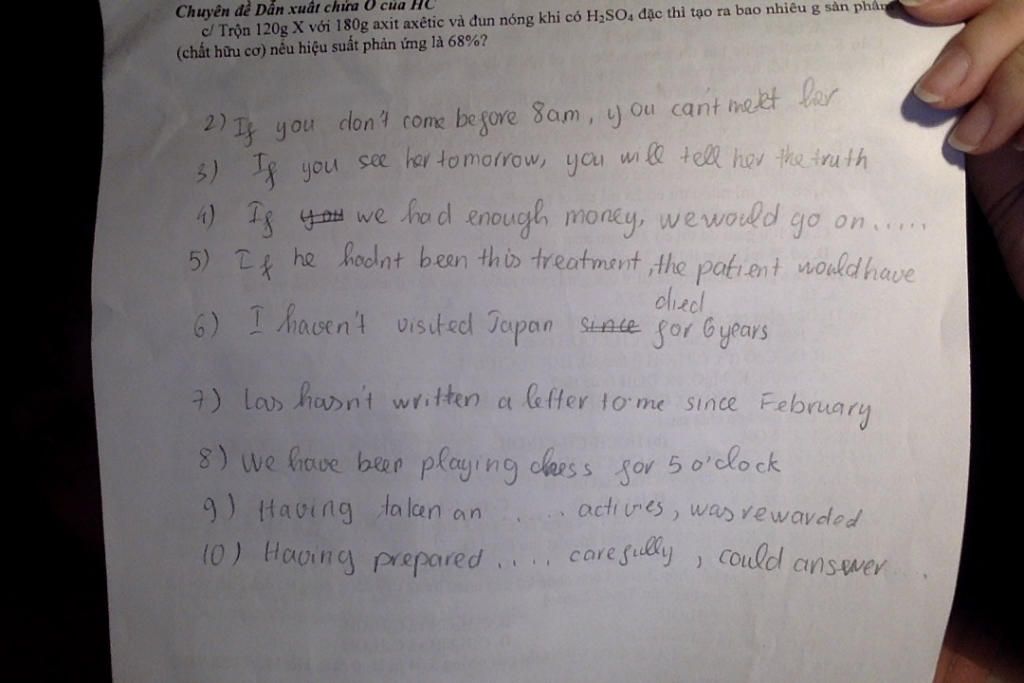 Chuyên đề Dẫn xuất chứa O của HC
c/ Trộn 120g X với 180g axit axêtic và đun nóng khi có H₂SO₄ đặc thì tạo ra bao nhiêu g sản phẩm
(chất hữu cơ) nếu hiệu suất phản ứng là 68%?
2) If you don't come before 8am, you can't meet her
3) If you see her tomorrow, you will tell her the truth
4) If you we had enough money, we would go on.....
5) If he hadnt been this treatment, the patient would have
died
6) I haven't visited Japan since for 6 years
7) Las hasn't written a letter to me since February
8) We have been playing chess for 5 o'clock
9) Having taken an .... activies, was rewarded
10) Having prepared .... carefully, could answer...